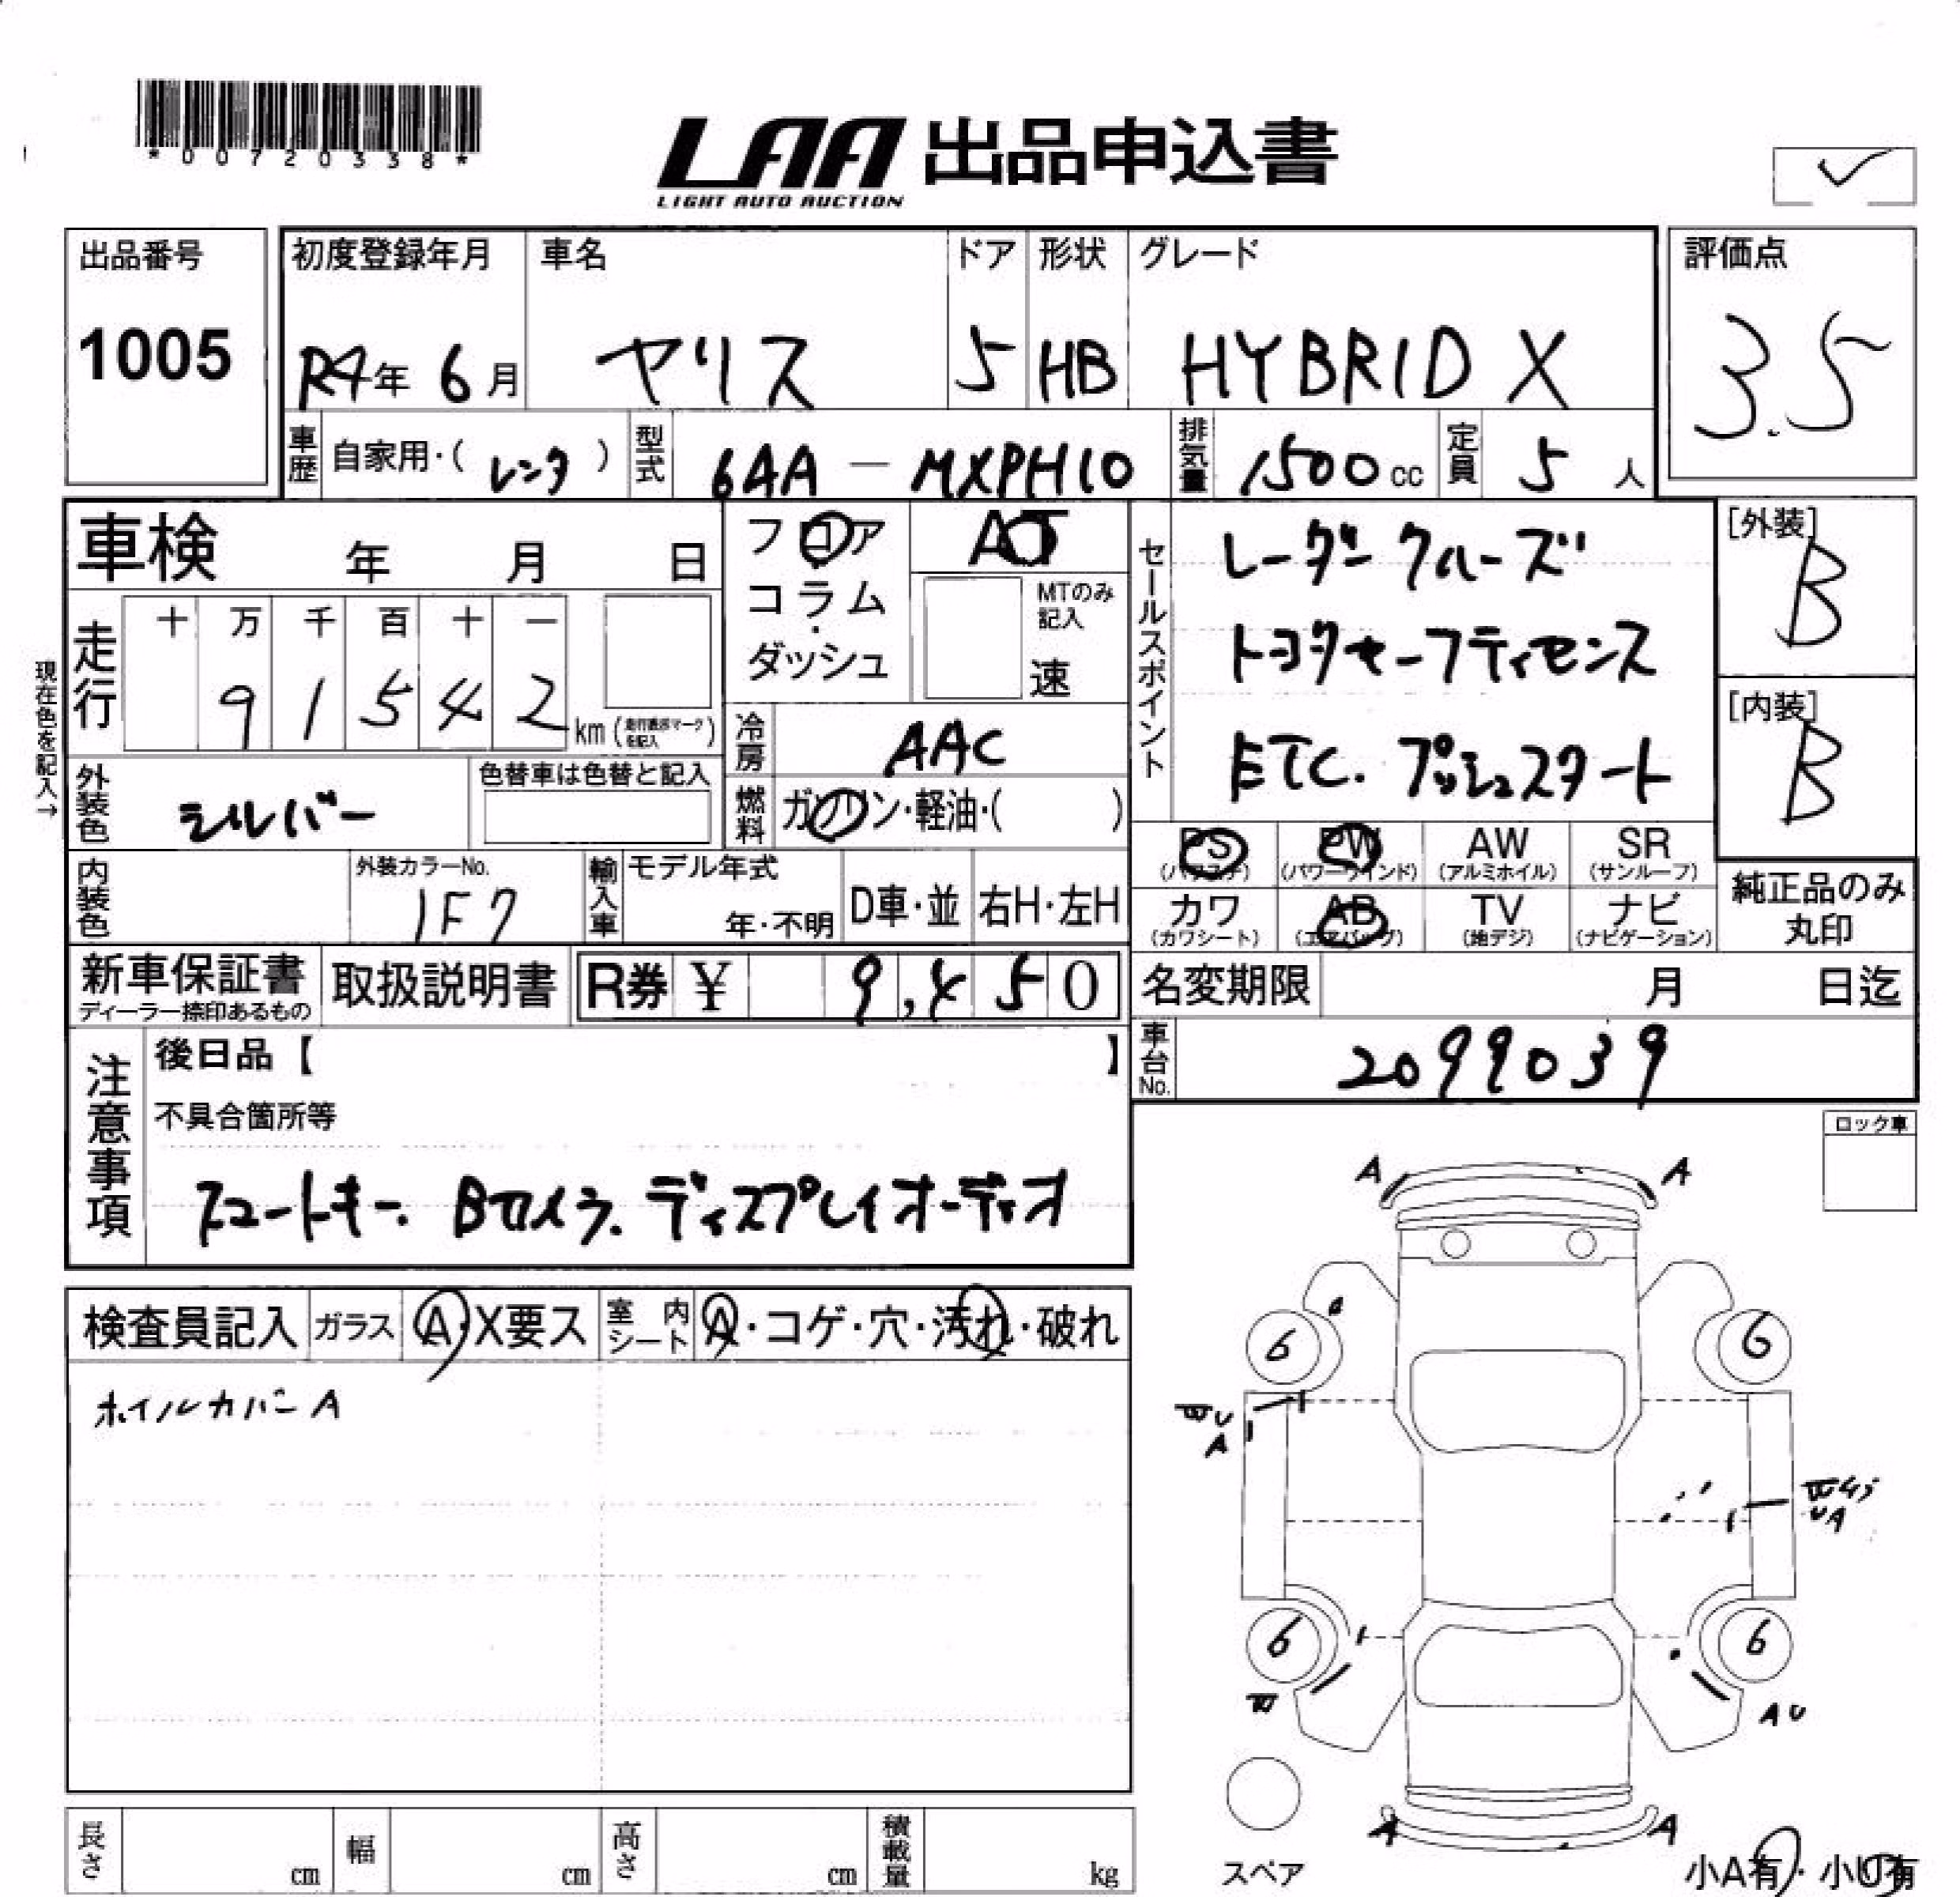 *00720338*
LAA 出品申込書
LIGHT AUTO AUCTION
出品番号 初度登録年月 車名 ドア 形状 グレード 評価点
1005 R4年 6月 ヤリス 5 HB HYBRID X 3.5
車歴 自家用・( レンタ ) 型式 6AA - MXPH10 排気量 1500cc 定員 5人
車検 年 月 日 フロア AT セールスポイント レーダークルーズ [外装] B
コラム・ダッシュ MTのみ記入 速 トヨタセーフティセンス
現在色を記入→
走行 十 万 千 百 十 一
91542 km (走行表示マークを記入)
冷房 AAC ETC. プッシュスタート [内装] B
外装色 シルバー 色替車は色替と記入 燃料 ガソリン・軽油・( )
PS (パワステ) PW (パワーウインド) AW (アルミホイル) SR (サンルーフ)
内装色 外装カラーNo. 1F7 輸入車 モデル年式 年・不明 D車・並 右H・左H
カワ (カワシート) AB (エアバッグ) TV (地デジ) ナビ (ナビゲーション) 純正品のみ丸印
新車保証書 ディーラー捺印あるもの 取扱説明書 R券 ¥ 9,450 名変期限 月 日迄
注意事項 後日品【 】 車台No. 2099039
不具合箇所等
スマートキー. Bカメラ. ディスプレイオーディオ
ロック車
A A
検査員記入 ガラス A・X要ス 室内シート A・コゲ・穴・汚れ・破れ
ホイルカバーA
6 6
U
A
UA
6 6
AU
A A
スペア 小A有・小U有
長さ cm 幅 cm 高さ cm 積載量 kg